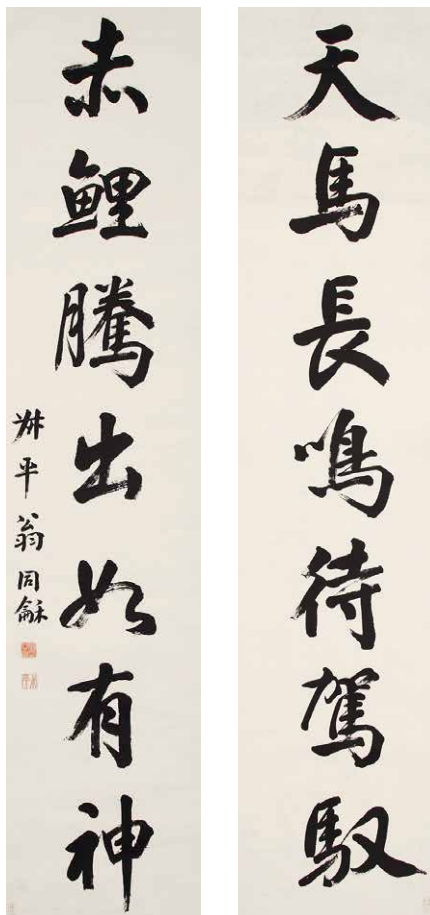 天馬長鳴待駕馭
赤鯉騰出如有神
叔平翁同龢